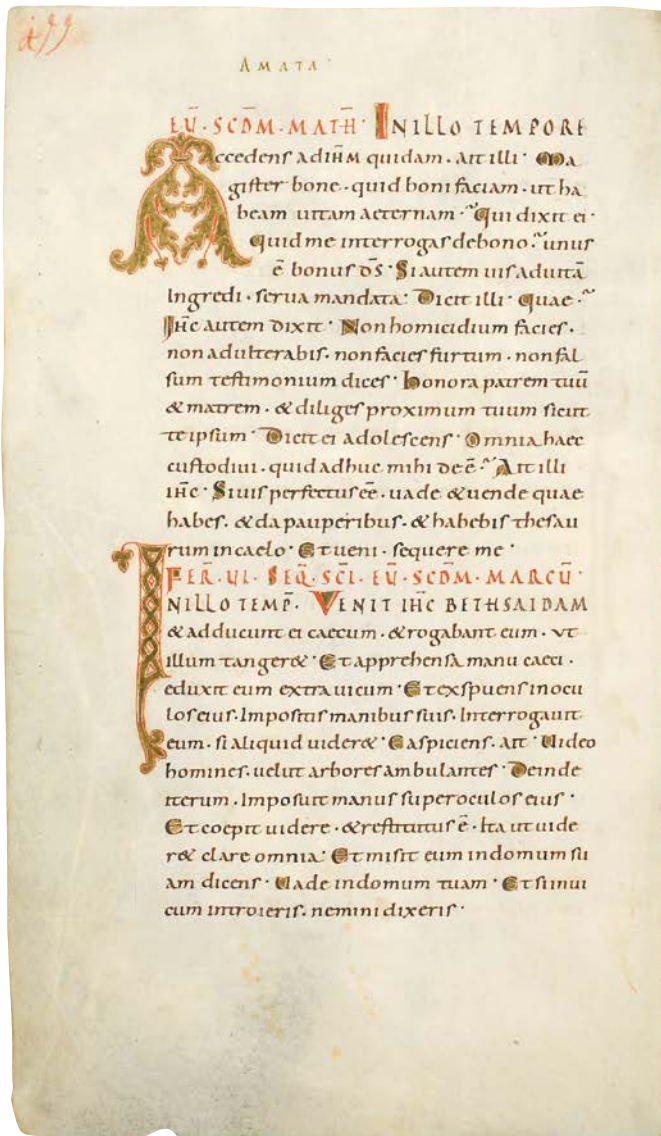 AMATA
EŪ · SCD̄M · MATH̄ · IN ILLO TEMPORE
Accedens ad ih̄m quidam · ait illi · Ma
gister bone · quid boni faciam · ut ha
beam uitam aeternam · Qui dixit ei ·
Quid me interrogas de bono · unus
ē bonus d̄s · Si autem uis ad uitā
Ingredi · serua mandata · Dicit illi · Quae ·
Ih̄c autem dixit · Non homicidium facies ·
non adulterabis · non facies furtum · non fal
sum testimonium dices · honora patrem tuū
& matrem · & diliges proximum tuum sicut
te ipsum · Dicit ei adolescens · Omnia haec
custodiui · quid adhuc mihi deē · Ait illi
ih̄c · Si uis perfectus eē · uade & uende quae
habes · & da pauperibus · & habebis thesau
rum in caelo · Et ueni · sequere me ·
FER̄ · UI · SEQ̄ · SC̄I · EŪ · SCD̄M · MARCŪ ·
IN ILLO TEMP̄ · VENIT IH̄C BETHSAIDAM
& adducunt ei caecum · & rogabant eum · ut
illum tanger& · Et apprehensa manu caeci ·
eduxit eum extra uicum · Et exspuens in ocu
los eius · Impositis manibus suis · Interrogauit
eum · si aliquid uider& · Et aspiciens · ait · Uideo
homines · uelut arbores ambulantes · Deinde
iterum · Imposuit manus super oculos eius ·
Et coepit uidere · & restitutus ē · Ita ut uide
r& clare omnia · Et misit eum in domum su
am dicens · Uade in domum tuam · Et si in ui
cum introieris · nemini dixeris ·